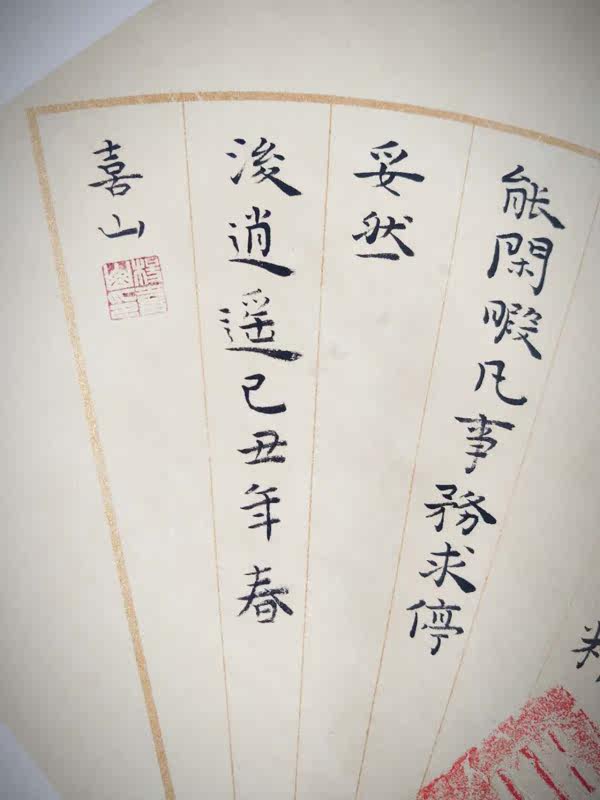 能閑暇凡事務求停
妥然
浚逍遥己丑年春
喜山